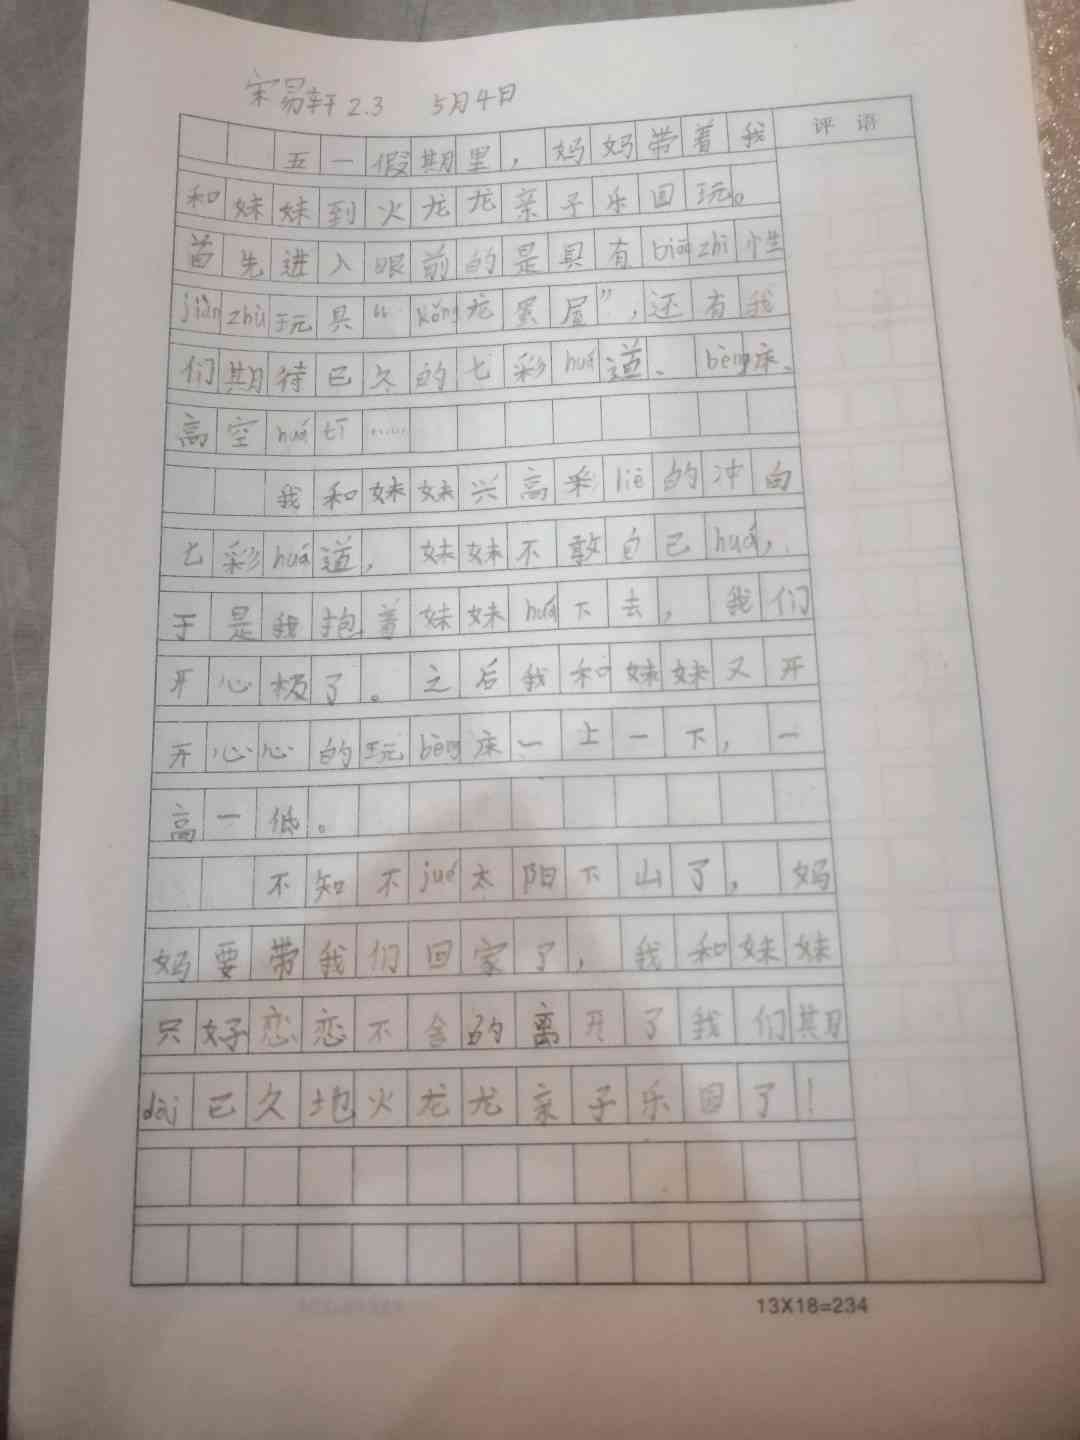 宋易轩 2.3 5月4日
评语
五一假期里，妈妈带着我
和妹妹到火龙龙亲子乐回玩。
首先进入眼前的是具有biāo zhì性
jiàn zhù玩具“kǒng龙蛋屋”，还有我
们期待已久的七彩huá道、bèng床、
高空huá tī……
我和妹妹兴高彩liè的冲向
七彩huá道，妹妹不敢自己huá，
于是我抱着妹妹huá下去，我们
开心极了。之后我和妹妹又开
开心心的玩bèng床、一上一下，一
高一低。
不知不jué太阳下山了，妈
妈要带我们回家了，我和妹妹
只好恋恋不舍的离开了我们期
dài已久地火龙龙亲子乐回了！
13X18=234